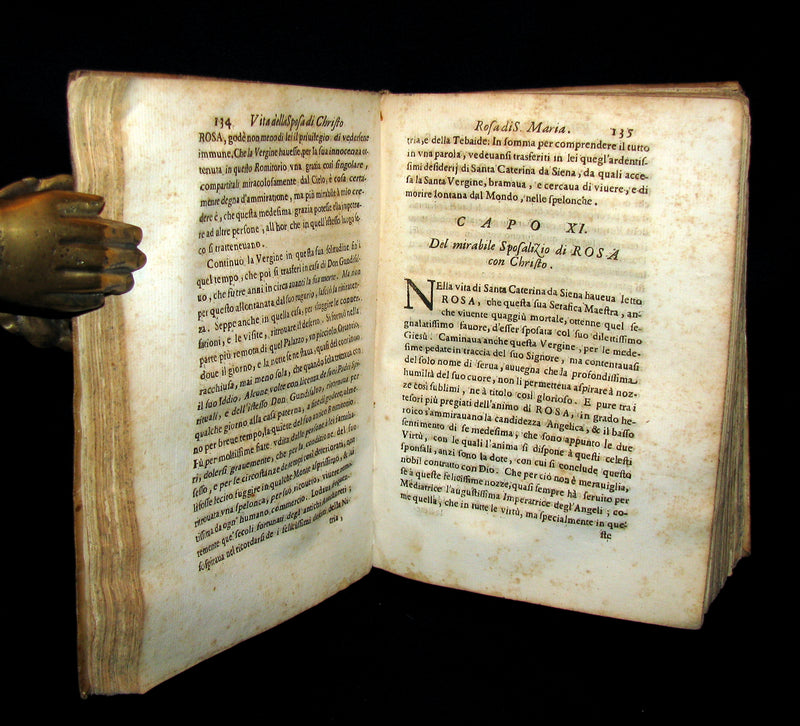 134 Vita della Sposa di Christo
ROSA, godè non meno di lei il priuilegio di vedersene
immune. Che la Vergine hauesse, per la sua innocenza ot-
tenuta in questo Romitorio vna grazia così singolare,
compartitali miracolosamente dal Cielo, è cosa certa-
mente degna d'ammiratione, ma più mirabile à mio cre-
dere è, che questa medesima grazia potesse ella impetra-
re ad altre persone, all'hor che in quell'istesso luogo se-
co si tratteneuano.
Continuò la Vergine in questa sua solitudine sin à
quel tempo, che poi si trasferì in casa di Don Gundisal-
uo, che fù tre anni in circa auanti la sua morte. Ma non
per questo allontanata dal suo tugurio, lasciò la ritiratez-
za. Seppe anche in quella casa, per fuggire le conuer-
sationi, e le visite, ritrouare il deserto. Si formò nella
parte più remota di quel Palazzo, vn picciolo Oratorio,
doue il giorno, e la notte se ne staua, quasi del continuo
racchiusa, mai meno sola, che quando sola trattaua con
il suo Iddio. Alcune volte con licenza de suoi Padri Spi-
rituali, e dell'istesso Don Gundisaluo, ritornaua per
qualche giorno alla casa paterna, a fine di godere, alme-
no per breue tempo, la quiete del suo antico Romitorio.
Fù per moltissime fiate vdita dalle persone à lei familia-
ri, dolersi grauemente, che per la conditione del suo
sesso, e per le circostanze de tempi così deteriorati, non
li fosse lecito fuggire in qualche Monte asprissimo, & iui
ritrouata vna spelonca, per suo ricouero, viuere remo-
tissima da ogn' humano commercio. Lodaua
temente que' secoli fortunati degl'antichi Anacoreti;
sospiraua nel ricordarsi de i felicissimi deserti della Ni-
tria,
Rosa di S. Maria. 135
tria, e della Tebaide: In somma per comprendere il tutto
in vna parola, vedeuansi trasferiti in lei quegl'ardentis-
simi desiderij di Santa Caterina da Siena, da quali acce-
sa la Santa Vergine, bramaua, e cercaua di viuere, e di
morire lontana dal Mondo, nelle spelonche.
CAPO XI.
Del mirabile Sposalizio di ROSA
con Christo.
NElla vita di Santa Caterina da Siena haueua letto
ROSA, che questa sua Serafica Maestra, an-
che viuente quaggiù mortale, ottenne quel se-
gnalatissimo fauore, d'esser sposata col suo dilettissimo
Giesù. Caminaua anche questa Vergine, per le mede-
sime pedate in traccia del suo Signore, ma contentauasi
del solo nome di serua, auuegna che la profondissima
humiltà del suo cuore, non li permetteua aspirare à noz-
ze così sublimi, ne à titolo così glorioso. E pure tra i
tesori più pregiati dell'animo di ROSA, in grado he-
roico s'ammirauano la candidezza Angelica, & il basso
sentimento di se medesima, che sono appunto le due
Virtù, con le quali l'anima si dispone à questi celesti
sponsali, anzi sono la dote, con cui si conclude questo
nobil contratto con Dio. Che per ciò non è merauiglia,
se à queste felicissime nozze, quasi sempre hà seruito per
Mediatrice l'augustissima Imperatrice degl'Angeli; co-
me quella, che in tutte le virtù, ma specialmente in que-
ste